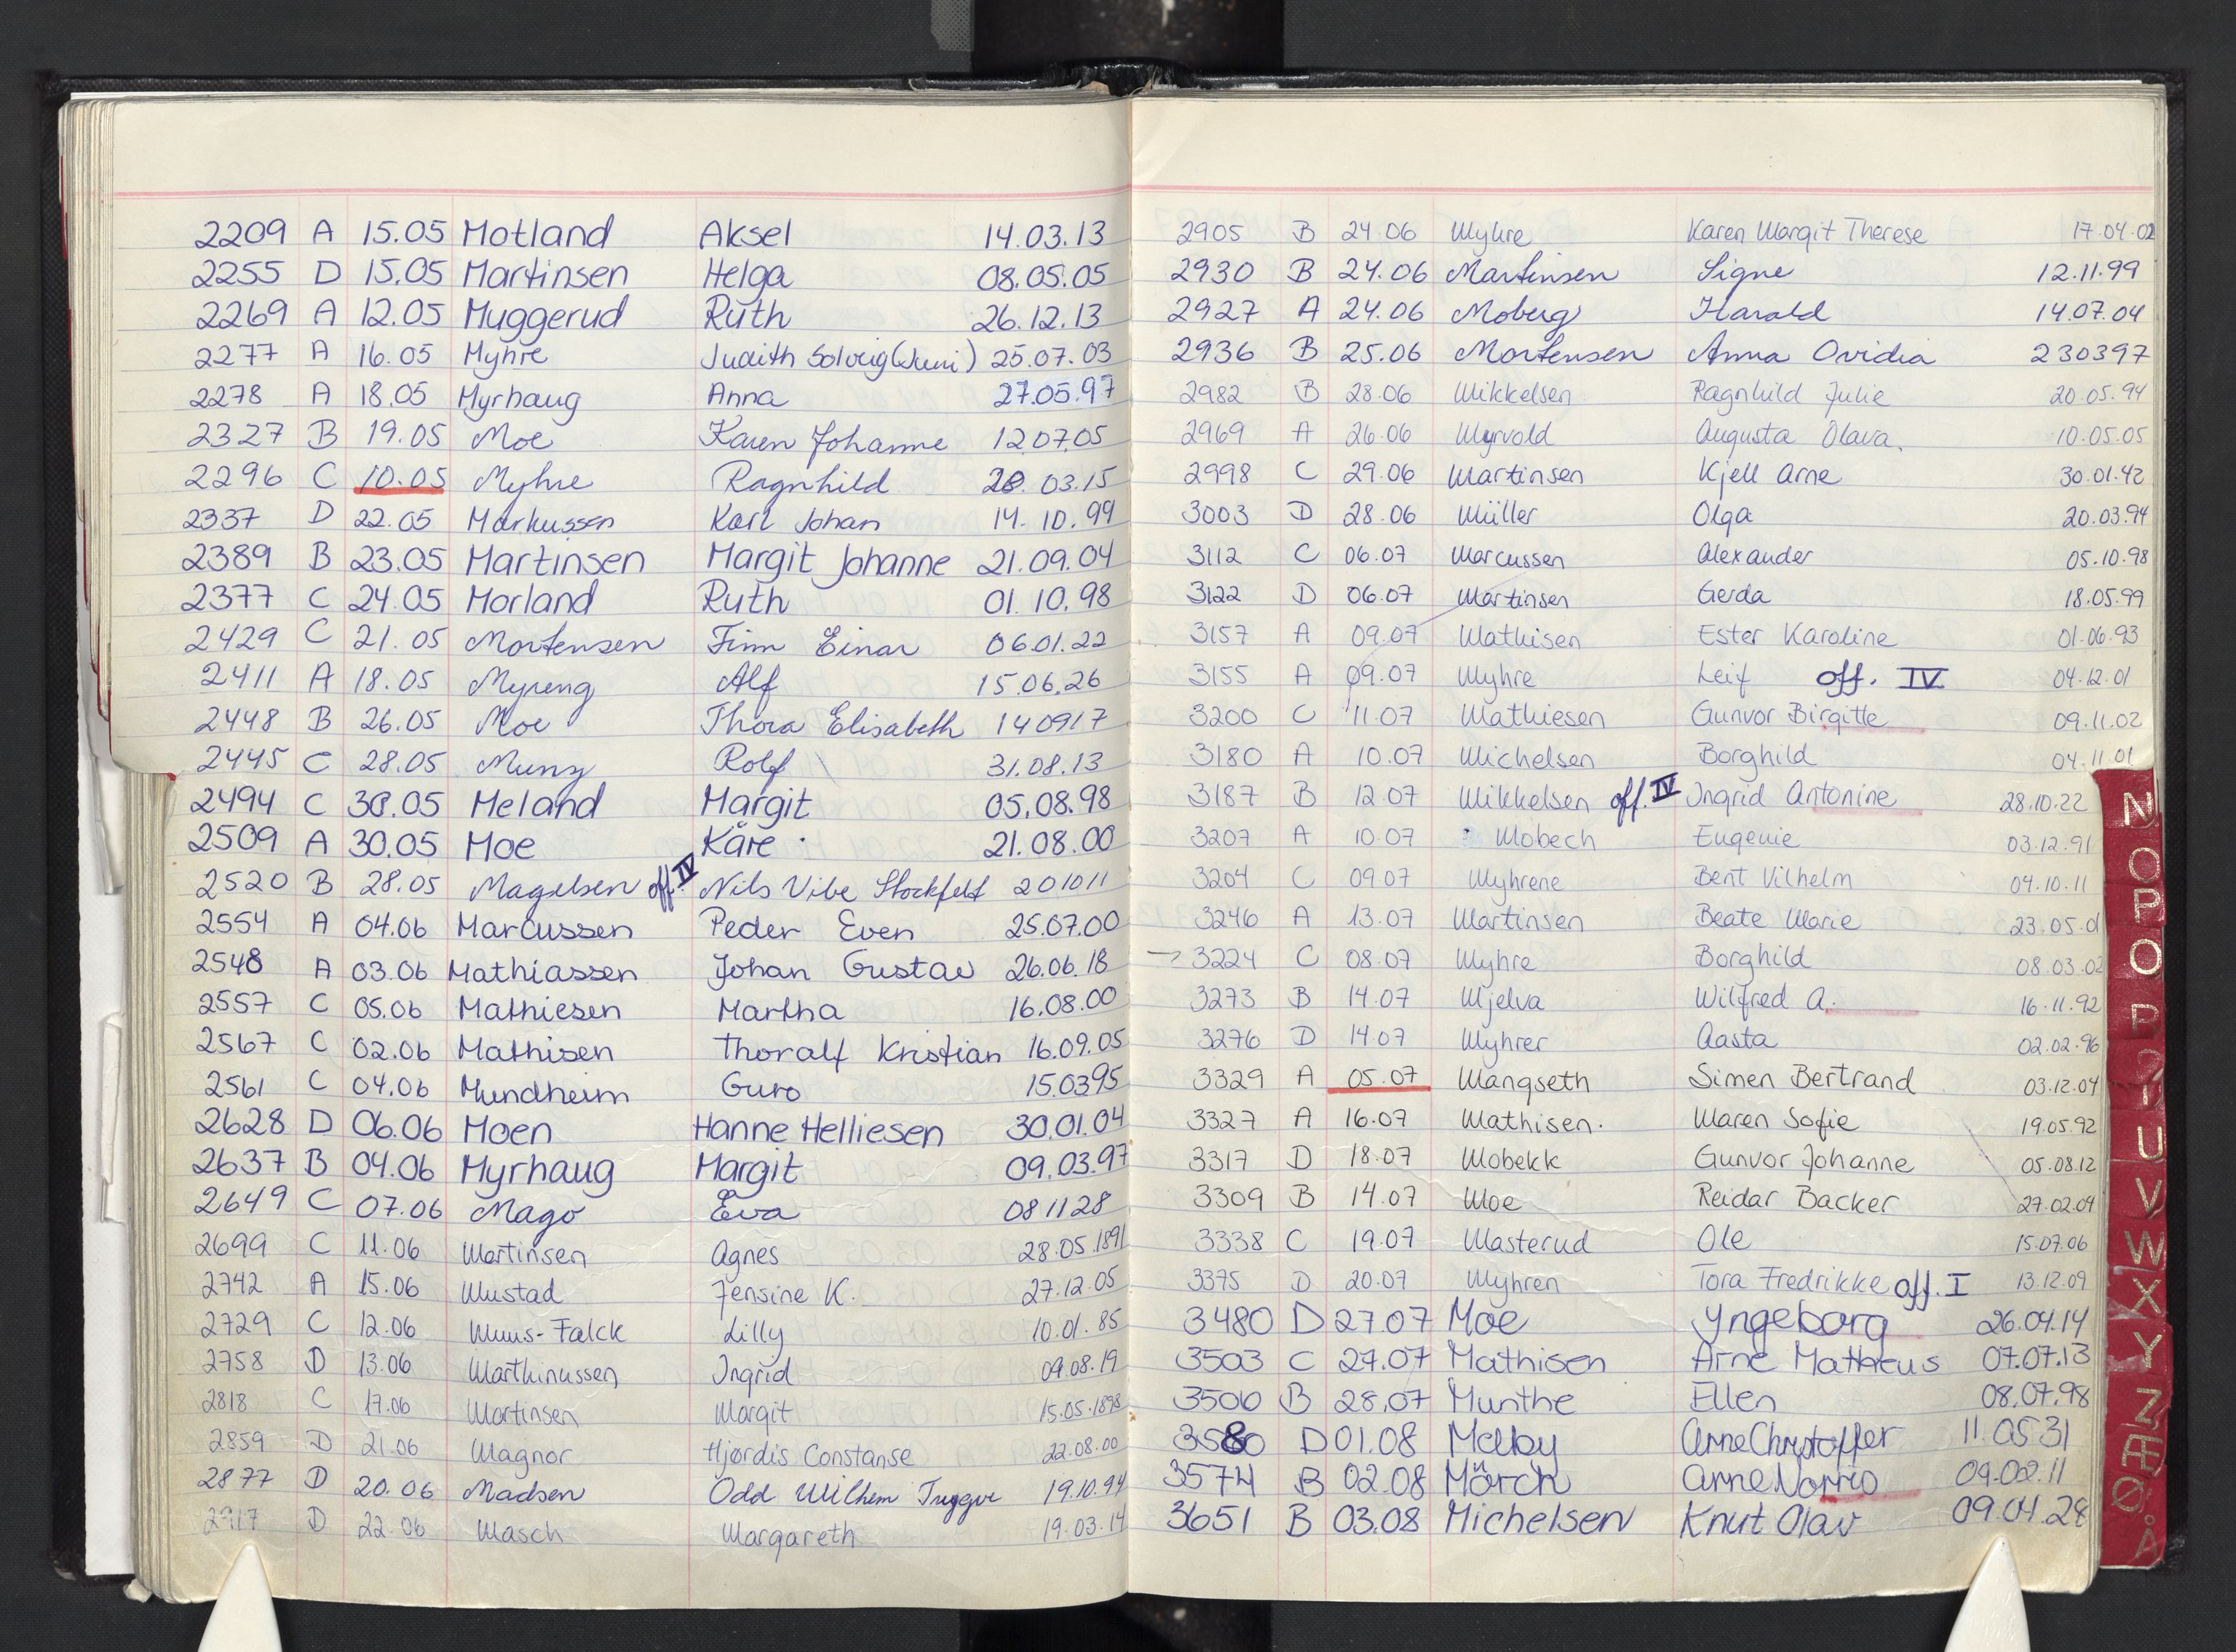 2209 A 15.05 Motland Aksel 14.03.13
2255 D 15.05 Martinsen Helga 08.05.05
2269 A 12.05 Muggerud Ruth 26.12.13
2277 A 16.05 Myhre Judith Solveig (Juni) 25.07.03
2278 A 18.05 Myrhaug Anna 27.05.97
2327 B 19.05 Moe Karen Johanne 12.07.05
2296 C 10.05 Myhre Ragnhild 28.03.15
2337 D 22.05 Markussen Karl Johan 14.10.99
2389 B 23.05 Martinsen Margit Johanne 21.09.04
2377 C 24.05 Morland Ruth 01.10.98
2429 C 21.05 Mortensen Finn Einar 06.01.22
2411 A 18.05 Myreng Alf 15.06.26
2448 B 26.05 Moe Thora Elisabeth 140917
2445 C 28.05 Rolf 31.08.13
2494 C 30.05 Meland Margit 05.08.98
2509 A 30.05 Moe Kåre 21.08.00
2520 B 28.05 Magelsen off. IV Nils Vibe Stockfelt 201011
2554 A 04.06 Marcussen Peder Even 25.07.00
2548 A 03.06 Mathiassen Johan Gustav 26.06.18
2557 C 05.06 Mathiesen Martha 16.08.00
2567 C 02.06 Mathisen Thoralf Kristian 16.09.05
2561 C 04.06 Mundheim Guro 15.0395
2628 D 06.06 Moen Hanne Helliesen 30.01.04
2637 B 04.06 Myrhaug Margit 09.03.97
2649 C 07.06 Mago Eva 081128
2699 C 11.06 Martinsen Agnes 28.05.1891
2742 A 15.06 Mustad Jensine K. 27.12.05
2729 C 12.06 Muus-Falck Lilly 10.01.85
2758 D 13.06 Marthinussen Ingrid 09.08.19
2818 C 17.06 Martinsen Margit 15.05.1898
2859 D 21.06 Magnor Hjørdis Constanse 22.08.00
2877 D 20.06 Madsen Odd Wilhem Tryggve 19.10.94
2917 D 22.06 Masch Margareth 19.03.14
2905 B 24.06 Myhre Karen Margit Therese 17.04.02
2930 B 24.06 Martinsen Signe 12.11.99
2927 A 24.06 Moberg Harald 14.07.04
2936 B 25.06 Mortensen Anna Ovidia 230397
2982 B 28.06 Mikkelsen Ragnhild Julie 20.05.94
2969 A 26.06 Myrvold Augusta Olava. 10.05.05
2998 C 29.06 Martinsen Kjell Arne 30.01.42
3003 D 28.06 Müller Olga 20.03.94
3112 C 06.07 Marcussen Alexander 05.10.98
3122 D 06.07 Martinsen Gerda 18.05.99
3157 A 09.07 Mathisen Ester Karoline 01.06.93
3155 A 09.07 Myhre Leif off. IV 04.12.01
3200 C 11.07 Mathiesen Gunvor Birgitte 09.11.02
3180 A 10.07 Michelsen Borghild 04.11.01
3187 B 12.07 Mikkelsen off. IV Ingrid Antonine 28.10.22
3207 A 10.07 Mobech Eugenie 03.12.91
3204 C 09.07 Myhrene Bent Vilhelm 04.10.11
3246 A 13.07 Martinsen Beate Marie 23.05.01
→ 3224 C 08.07 Myhre Borghild 08.03.02
3273 B 14.07 Mjelva Wilfred A. 16.11.92
3276 D 14.07 Myhrer Aasta 02.02.96
3329 A 05.07 Mangseth Simen Bertrand 03.12.04
3327 A 16.07 Mathisen. Maren Sofie 19.05.92
3317 D 18.07 Mobekk Gunvor Johanne 05.08.12
3309 B 14.07 Moe Reidar Backer 27.02.09
3338 C 19.07 Masterud Ole 15.07.06
3375 D 20.07 Myhren Tora Fredrikke off. I 13.12.09
3480 D 27.07 Moe Yngeborg 26.04.14
3503 C 27.07 Mathisen Arne Matheus 07.07.13
3506 B 28.07 Munthe Ellen 08.07.98
3580 D 01.08 Melby Arne Christoffer 11.0531
3574 B 02.08 Mörch Arne 09.02.11
3651 B 03.08 Michelsen Knut Olav 09.04.28
N
O
P
O
P
U
V
W
X
Y
Z
Æ
Ø
Å